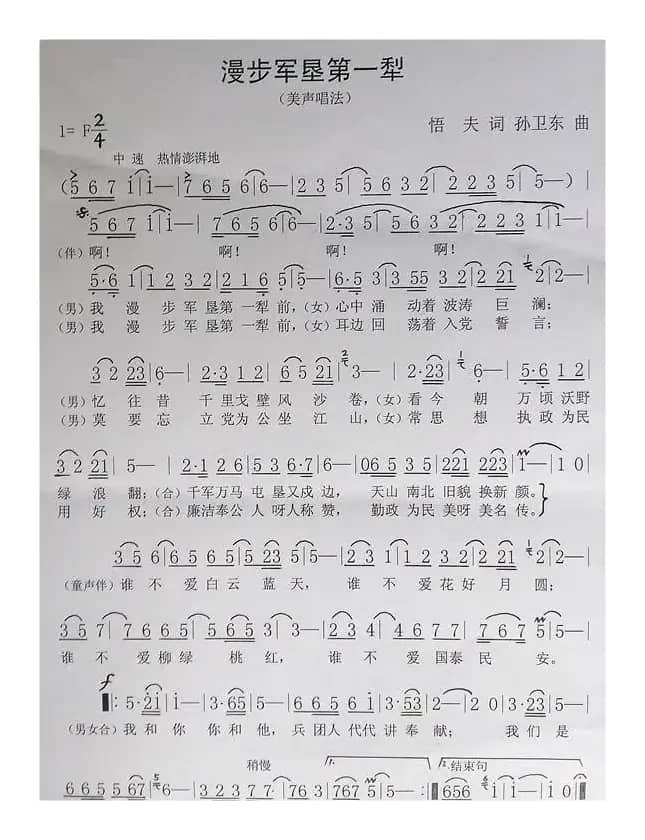 漫步军垦第一犁
（美声唱法）
1= F 2/4
悟 夫 词 孙卫东 曲
中 速 热情澎湃地
（5 6 7 i|i—|7 6 5 6|6—|2 3 5|5 6 3 2|2 2 3 5|5—）|
5 6 7 i|i—|7 6 5 6|6—|2·3 5|5 6 3 2|2 2 3 1|1—|
（伴）啊！ 啊！ 啊！ 啊！
5·6|1 2 3 2|2 1 6|5—|6·5 3|3 55 3 2|2 21|2|2—|
（男）我 漫 步 军 垦第 一犁 前，（女）心中 涌 动着 波涛 巨 澜；
（男）我 漫 步 军 垦第 一犁 前，（女）耳边 回 荡着 入党 誓 言；
3 2 23|6—|2·3 1 2|6 5 21|3—|2·23|6—|5·6 1 2|
（男）忆 往 昔 千 里戈 壁 风 沙 卷，（女）看 今 朝 万 顷 沃野
（男）莫 要 忘 立 党为 公 坐 江 山，（女）常 思 想 执政 为民
3 2 21|5—|2·1 2 6|5 3 6·7|6—|06 5 3 5|221 223|1—|1 0|
绿 浪 翻；（合）千军万马 屯 垦又戍 边， 天山 南北 旧貌 换新 颜。
用 好 权；（合）廉洁奉公 人 呀人称 赞， 勤政 为民 美呀 美名 传。
3 5 6|5 6 5|5 23|5—|2 2 3|1 2 3|6 21|2|2—|
（童声伴）谁 不 爱白云 蓝 天， 谁 不 爱花好 月 圆；
3 5 7|7 6 6 5|5 65|3|3—|2 2 3|4 3 2|7 6 7|5|5—|
谁 不 爱柳绿 桃 红， 谁 不 爱国泰 民 安。
f
5·2i|i·3|2·3|5—|6 6 5 6 i|3·53|2—|2 0|3·5|
（男女合）我 和 你 你 和 他，兵 团人 代代 讲 奉 献； 我 们 是
稍慢
1.
2.结束句
6 6 5 5 67|6—|3 2 3 7 7|7 67|5|5—:|656|i|i—|i 0|